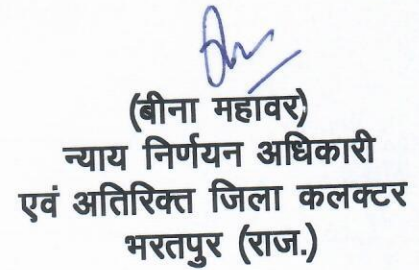 (बीना महावर)
न्याय निर्णयन अधिकारी
एवं अतिरिक्त जिला कलक्टर
भरतपुर (राज.)